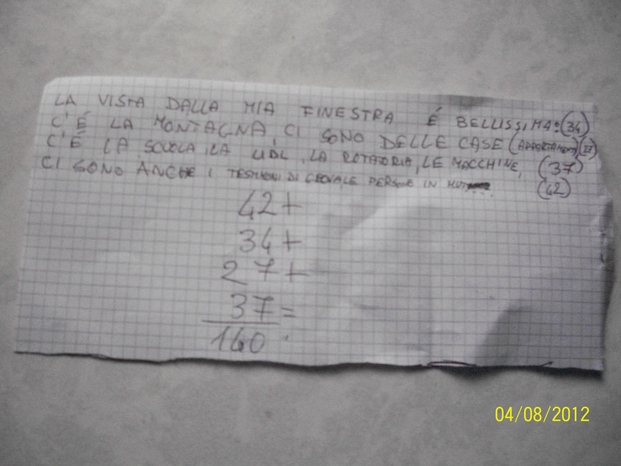 LA VISTA DALLA MIA FINESTRA É BELLISSIMA: (34)
C'É LA MONTAGNA, CI SONO DELLE CASE (APPARTAMENTI)
C'É LA SCUOLA, LA LIDL, LA ROTATORIA, LE MACCHINE, (37)
CI SONO ANCHE I TESTIMONI DI GEOVA LE PERSONE IN (42)
42+
34+
27+
37=
160
04/08/2012